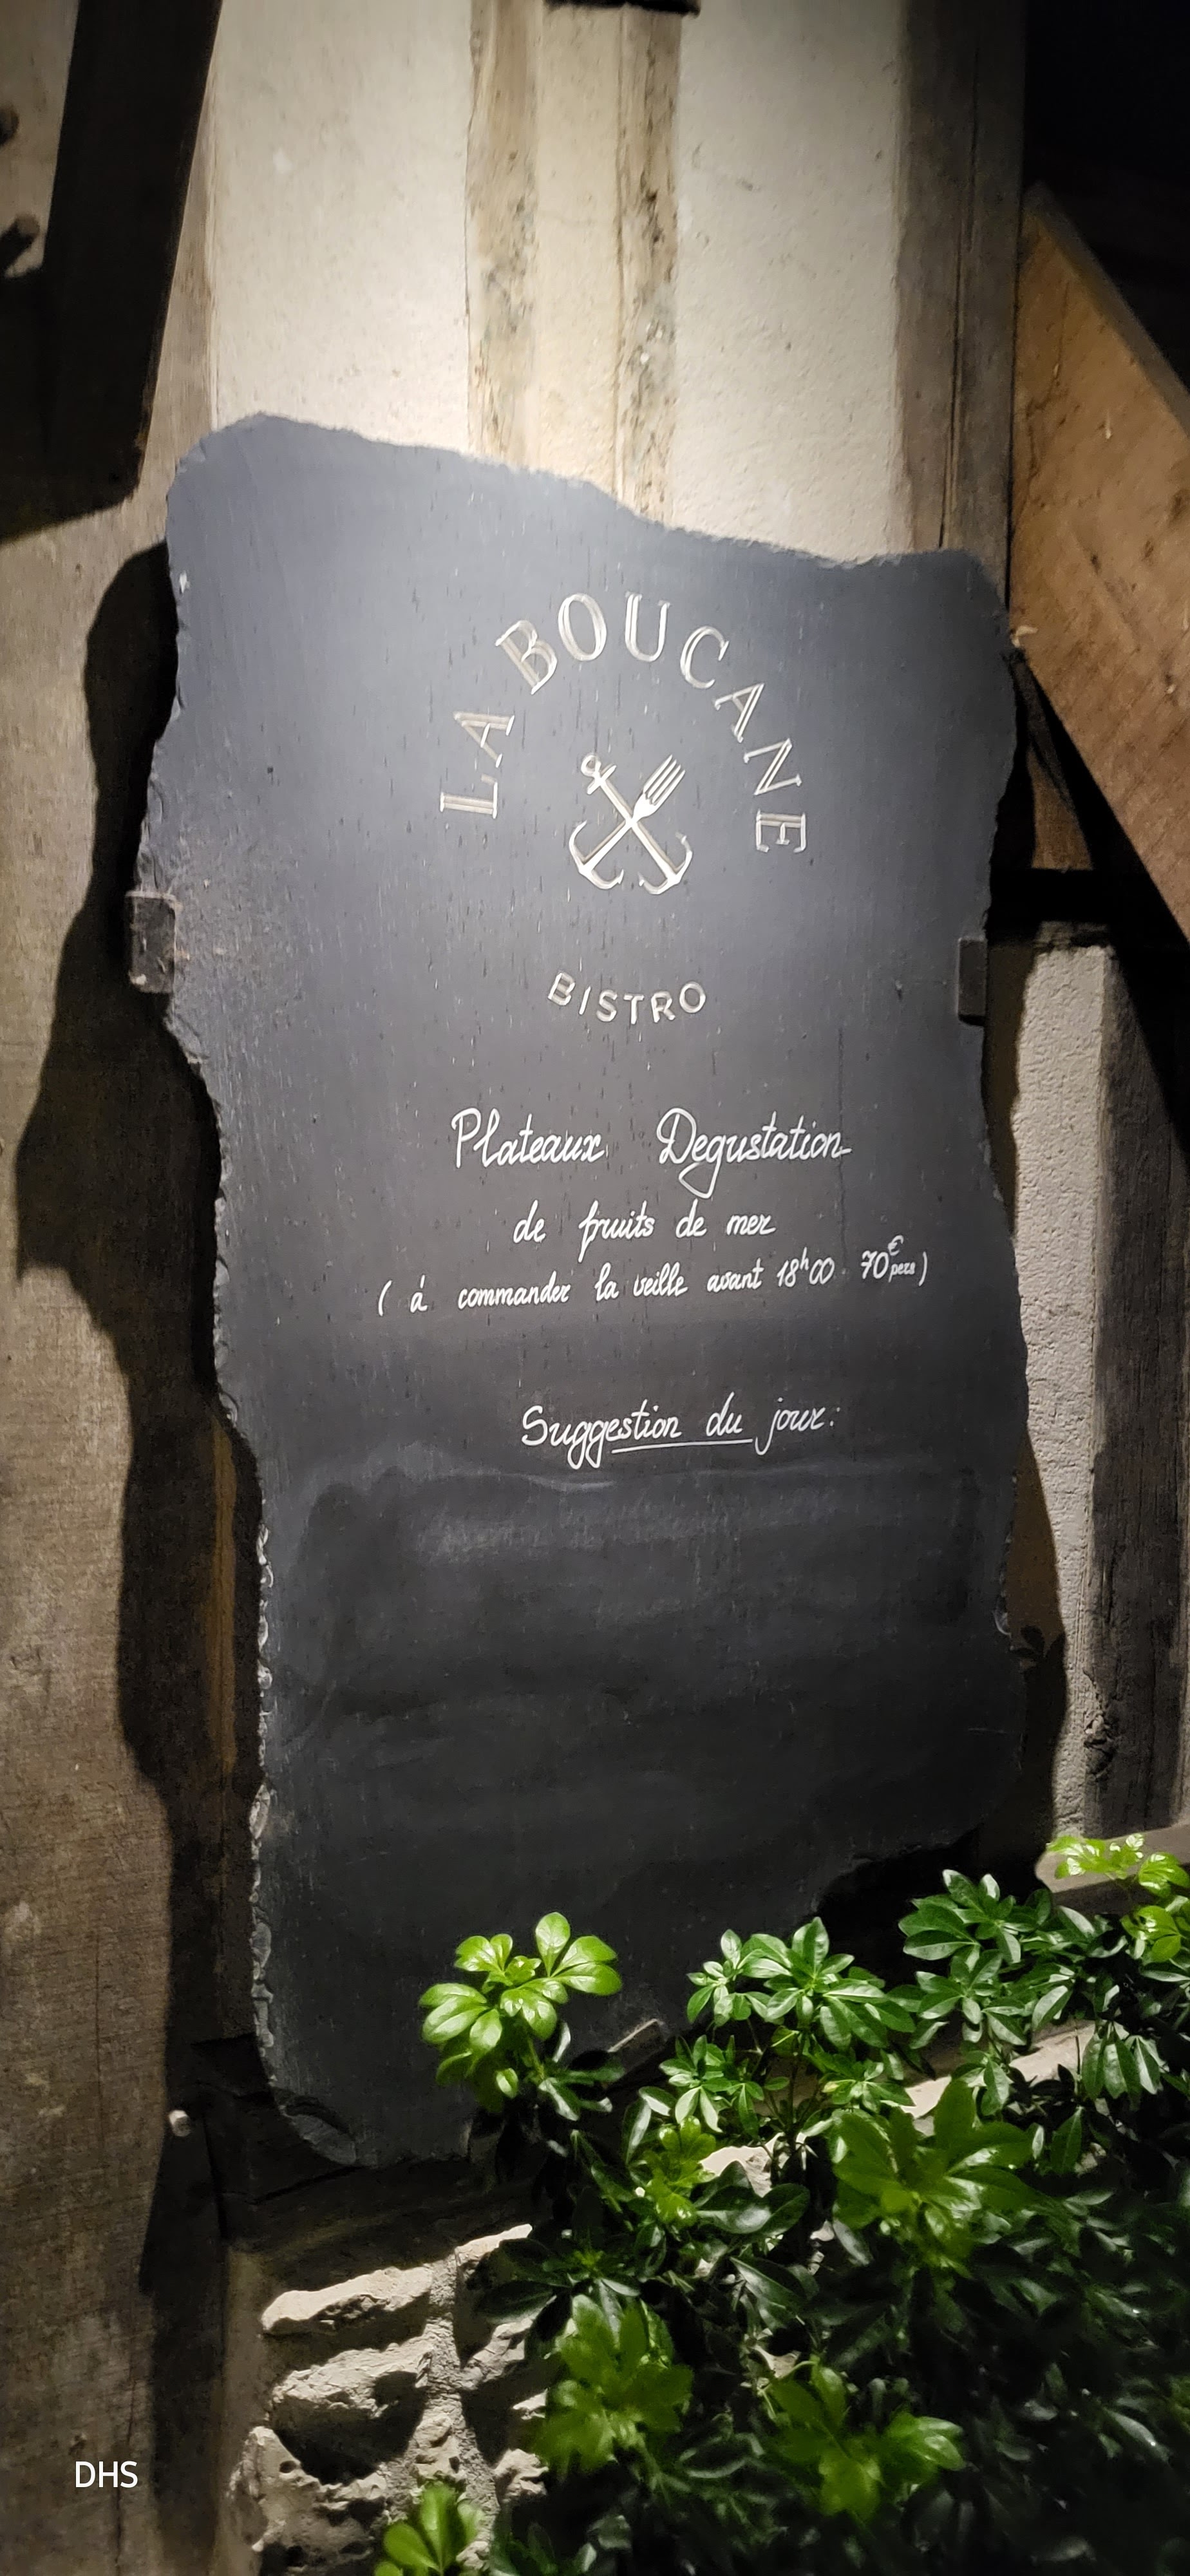 LA BOUCANE
BISTRO
Plateaux Degustation
de fruits de mer
( á commander la veille avant 18h00 70€ pers)
Suggestion du jour:
DHS